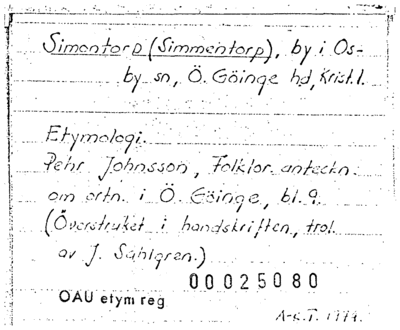 Simontorp (Simmentorp), by i Os-
by sn, Ö. Göinge hd, Krist.l.
Etymologi.
Pehr Johnsson, Folklor. anteckn.
om ortn. i Ö. Göinge, bl. 9.
(Överstruket i handskriften, trol.
av J. Sahlgren.)
00025080
OAU etym reg
A-K.T. 1979.